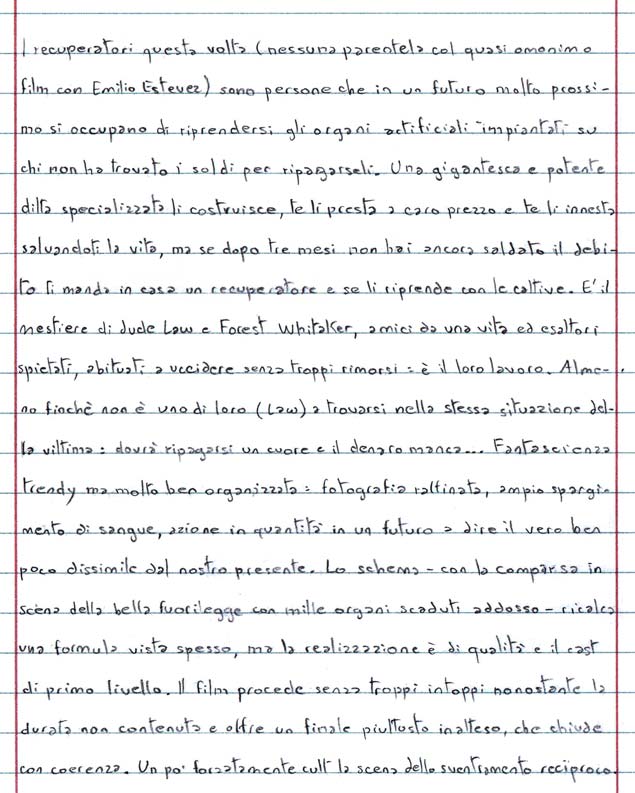 I recuperatori questa volta (nessuna parentela col quasi omonimo
film con Emilio Estevez) sono persone che in un futuro molto prossi-
mo si occupano di riprendersi gli organi artificiali impiantati su
chi non ha trovato i soldi per ripagarseli. Una gigantesca e potente
ditta specializzata li costruisce, te li presta a caro prezzo e te li innesta
salvandoti la vita, ma se dopo tre mesi non hai ancora saldato il debi-
to ti manda in casa un recuperatore e se li riprende con le cattive. E' il
mestiere di Jude Law e Forest Whitaker, amici da una vita ed esattori
spietati, abituati a uccidere senza troppi rimorsi: è il loro lavoro. Alme-
no finchè non è uno di loro (Law) a trovarsi nella stessa situazione del-
la vittima: dovrà ripagarsi un cuore e il denaro manca... Fantascienza
trendy ma molto ben organizzata: fotografia raffinata, ampio spargi-
mento di sangue, azione in quantità in un futuro a dire il vero ben
poco dissimile dal nostro presente. Lo schema - con la comparsa in
scena della bella fuorilegge con mille organi scaduti addosso - ricalca
una formula vista spesso, ma la realizzazione è di qualità e il cast
di primo livello. Il film procede senza troppi intoppi nonostante la
durata non contenuta e offre un finale piuttosto inatteso, che chiude
con coerenza. Un po' forzatamente cult la scena dello sventramento reciproco.